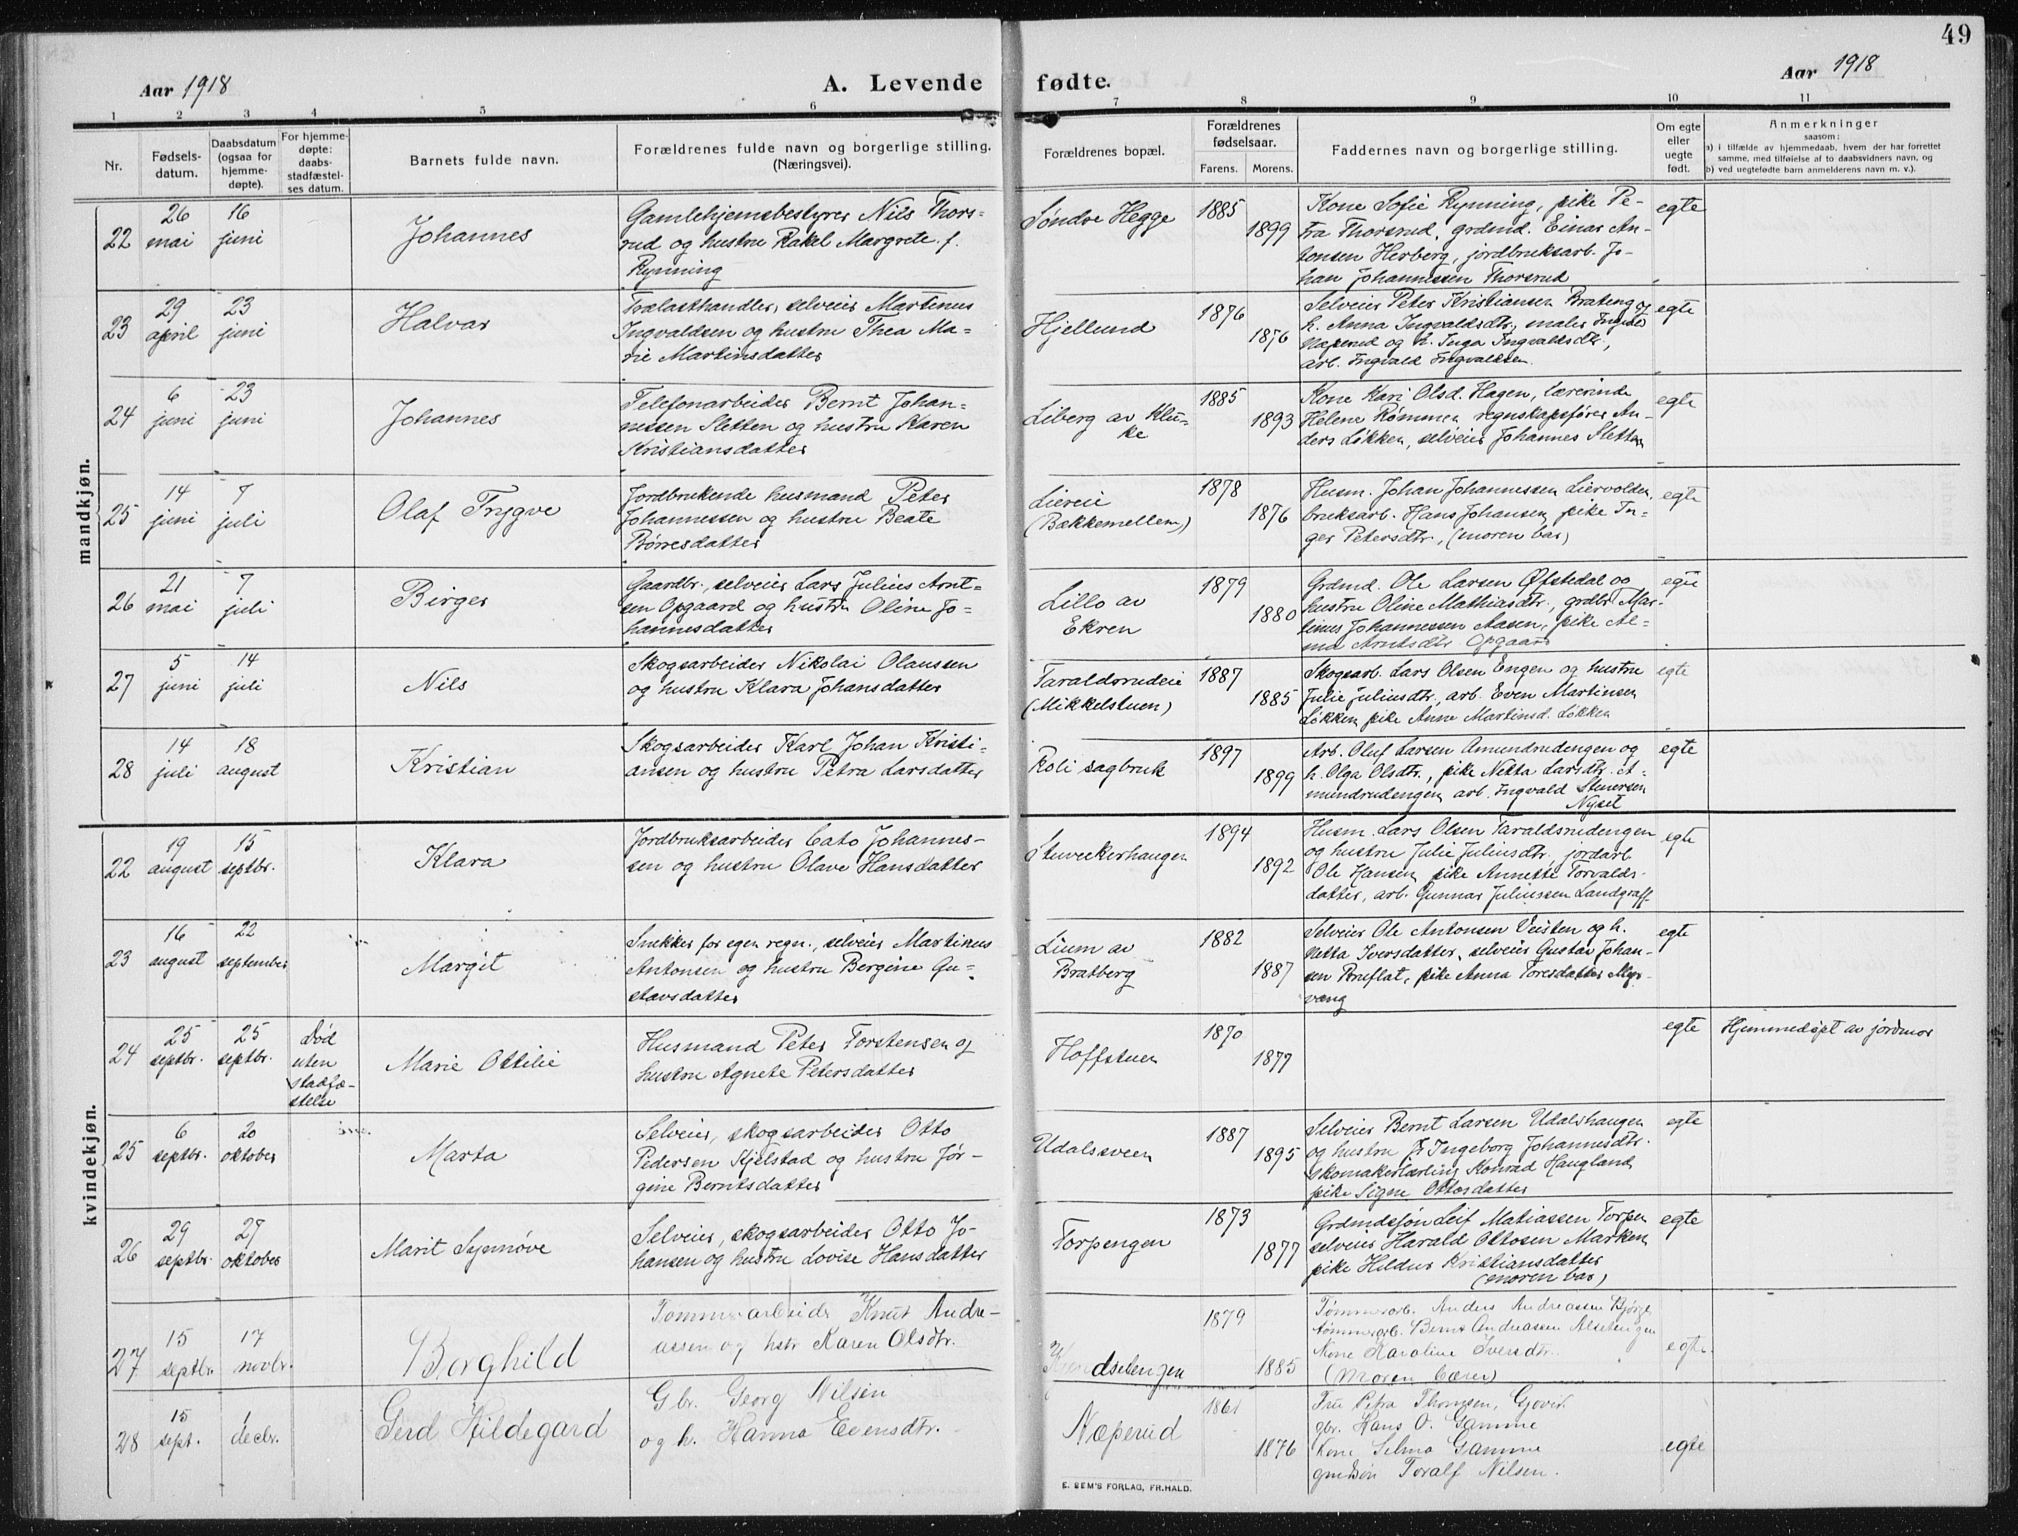 49
Aar 1918
A. Levende fødte.
Aar 1918
1 2 3 4 5 6 7 8 9 10 11
Nr.
Fødsels-
datum.
Daabsdatum
(ogsaa for
hjemme-
døpte).
For hjemme-
døpte:
daabs-
stadfæstel-
ses datum.
Barnets fulde navn.
Forældrenes fulde navn og borgerlige stilling.
(Næringsvei).
Forældrenes bopæl.
Forældrenes
fødselsaar.
Farens. Morens.
Faddernes navn og borgerlige stilling.
Om egte
eller
uegte
født.
Anmerkninger
saasom:
a) i tilfælde av hjemmedaab, hvem der har forrettet
samme, med tilføielse af to daabsvidners navn, og
b) ved uegtefødte barn anmelderens navn m. v.).
mandkjøn.
22
26
mai
16
juni
Johannes
Gamlehjemsbestyrer Nils Thors-
rud og hustru Rakel Margrete f.
Rynning
Søndre Hegge
1885
1899
Kone Sofie Rynning, pike Pe-
tra Thorsrud, grdmd. Einar An-
tonsen Herberg, jordbruksarb. Jo-
han Johannessen Thorsrud
egte
23
29
april
23
juni
Halvar
Trælasthandler, selveier Martinus
Ingvaldsen og hustru Thea Ma-
rie Martinsdatter
Hjellund
1876
1876
Selveier Peter Kristiansen Brateng og
h. Anna Ingvaldsdtr, maler Ingvald
Næperud og h. Inga Ingvaldsdtr,
arb. Ingvald Ingvaldsen.
egte
24
6
juni
23
juni
Johannes
Telefonarbeider Bernt Johan-
nessen Sletten og hustru Karen
Kristiansdatter
Liberg av Klu-
ke
1885
1893
Kone Kari Olsd. Hagen, lærerinde
Helene Rømmen, regnskapsfører An-
ders Løkken, selveier Johannes Sletten
egte
25
14
juni
7
juli
Olaf Trygve
Jordbrukende husmand Peter
Johannessen og hustru Beate
Børresdatter
Liereie
(Bakkemellem)
1878
1876
Husm. Johan Johannessen Liervolden,
bruksarb. Hans Johansen, pike In-
ger Petersdtr., (moren bar)
egte
26
21
mai
7
juli
Birger
Gaardbr., selveier Lars Julius Arnt-
sen Opgaard og hustru Oline Jo-
hannesdatter
Lillo av
Ekren
1879
1880
Grdmd. Ole Larsen Øfstedal og
hustru Oline Mathiasdtr., grdbr Mar-
tinus Johannessen Aasen, pike Al-
ma Arntsdtr Opgaard
egte
27
5
juni
14
juli
Nils
Skogsarbeider Nikolai Olaussen
og hustru Klara Johansdatter
Taraldsrudeie
(Mikkelstuen)
1887
1885
Skogsarb. Lars Olsen Engen og hustru
Julie Juliusdtr, arb. Even Martinsen
Løkken, pike Anne Martinsd. Løkken
egte
28
14
juli
18
august
Kristian
Skogsarbeider Karl Johan Kristi-
ansen og hustru Petra Larsdatter
Roli sagbruk
1897
1899
Arb. Oluf Larsen Amundrudengen og
h. Olga Olsdtr., pike Netta Larsdtr. A-
mundrudengen, arb. Ingvald Stenersen
Nyset
egte
kvindekjøn.
22
19
august
15
septbr.
Klara
Jordbruksarbeider Cato Johannes-
sen og hustru Olave Hansdatter
Stuveekerhaugen
1894
1892
Husm. Lars Olsen Taraldsrudengen
og hustru Julie Juliusdtr, jordarb
Ole Hansen, pike Annette Torvalds-
datter, arb. Gunnar Juliussen Landgraff
egte
23
16
august
22
september
Margit
Snekker for egen regn., selveier Martinus
Antonsen og hustru Bergine Gu-
stavsdatter
Lium av
Bratberg
1882
1887
Selveier Ole Antonsen Veisten og h.
Netta Iversdatter, selveier Gustav Johan-
sen Bruflat, pike Anna Toresdatter Myr-
væng
egte
24
25
septbr.
25
septbr.
Død
uten
stadfæ-
stelse
Marie Ottilie
Husmand Peter Torstensen og
hustru Agnete Petersdatter
Hoffstuen
1870
1877
egte
Hjemmedøpt av jordmor
25
6
septbr.
20
oktober
Marta
Selveier, skogsarbeider Otto
Pedersen Kjelstad og hustru Jør-
gine Berntsdatter
Udalssveen
1887
1895
Selveier Bernt Larsen Udalshaugen
og hustru Ingeborg Johannesdtr.
skomakerlærling Konrad Haugland
pike Signe Ottersdatter
egte
26
29
septbr.
27
oktober
Marit Synnøve
Selveier, skogsarbeider Otto Jo-
hansen og hustru Lovise Hansdatter
Torpengen
1873
1877
Grdmdssøn Leif Matiassen Torpen
selveier Harald Ottosen Marken
pike Hildur Kristiansdatter
(moren bar)
egte
27
15
septbr.
17
novbr.
Borghild
Tømmerarbeider Knut Andre-
assen og hstr Karen Olsdtr.
1879
1885
Tømmerarb. Anders Andreassen Bjørge
tømmerarb. Bernt Andreassen
Kone Karoline Iversdtr.
(Moren bærer)
egte.
28
15
sept.
1
decbr.
Gerd Hildegard
Gbr. Georg Nilsen
og h. Hanna Evensdtr.
Næperud
1861
1876
Fru Petra Thomsen, Gjøvik
gbr. Hans O. Gamme
Kone Selma Gamme
gmdsøn Toralf Nilsen.
egte
E. SEM'S FORLAG, FR.HALD.